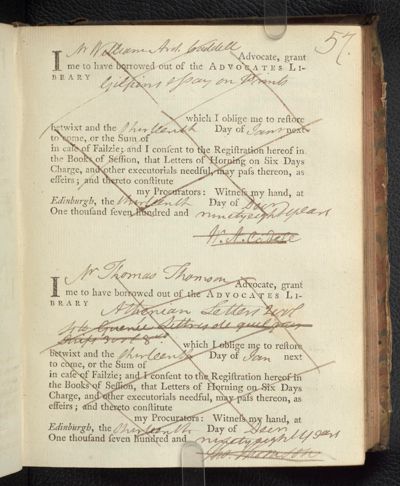 57.
I Mr William Arch. Cadell Advocate, grant
me to have borrowed out of the ADVOCATES LI-
BRARY Gilpins essay on Prints
which I oblige me to reſtore
betwixt and the thirteenth Day of Jany next
to come, or the Sum of
in caſe of Failzie; and I conſent to the Regiſtration hereof in
the Books of Seſſion, that Letters of Horning on Six Days
Charge, and other executorials needful, may paſs thereon, as
effeirs; and thereto conſtitute
my Procurators: Witneſs my hand, at
Edinburgh, the thirteenth Day of Decr
One thouſand ſeven hundred and ninety eight years
W. A. Cadell
I Mr Thomas Thomson Advocate, grant
me to have borrowed out of the ADVOCATES LI-
BRARY Athenian Letters 2 vol
which I oblige me to reſtore
betwixt and the thirteenth Day of Jan next
to come, or the Sum of
in caſe of Failzie; and I conſent to the Regiſtration hereof in
the Books of Seſſion, that Letters of Horning on Six Days
Charge, and other executorials needful, may paſs thereon, as
effeirs; and thereto conſtitute
my Procurators: Witneſs my hand, at
Edinburgh, the thirteenth Day of Decr
One thouſand ſeven hundred and ninety eight years
Tho. Thomson